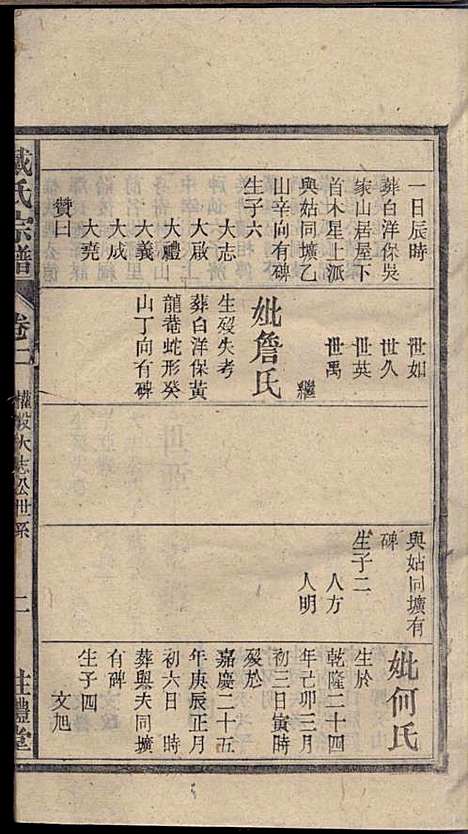 一日辰時
葬白洋保吳
家山居屋下
首木星上派
與姑同壙乙
山辛向有碑
生子六
大志
大啟
大禮
大義
大成
大堯
贊曰
世如
世久
世英
世禹
繼
妣詹氏
生歿失考
葬白洋保黃
龍菴蛇形癸
山丁向有碑
與姑同壙有
碑
生子二
人方
人明
妣何氏
生於
乾隆二十四
年己卯三月
初三日寅時
歿於
嘉慶二十五
年庚辰正月
初六日 時
葬與夫同壙
有碑
生子四
文旭
戴氏宗譜
卷二
大志公世系
二
注禮堂